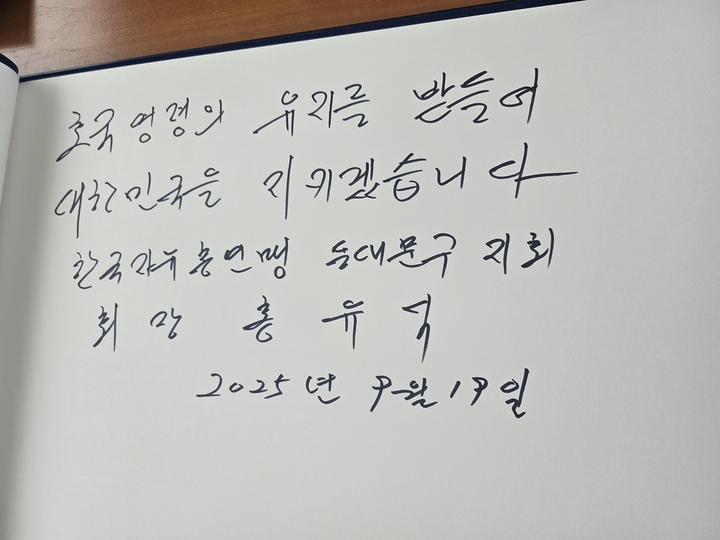 호국영령의 유지를 받들어
대한민국을 지키겠습니다
한국자유총연맹 동대문구 지회
회장 홍유석
2025년 9월 19일